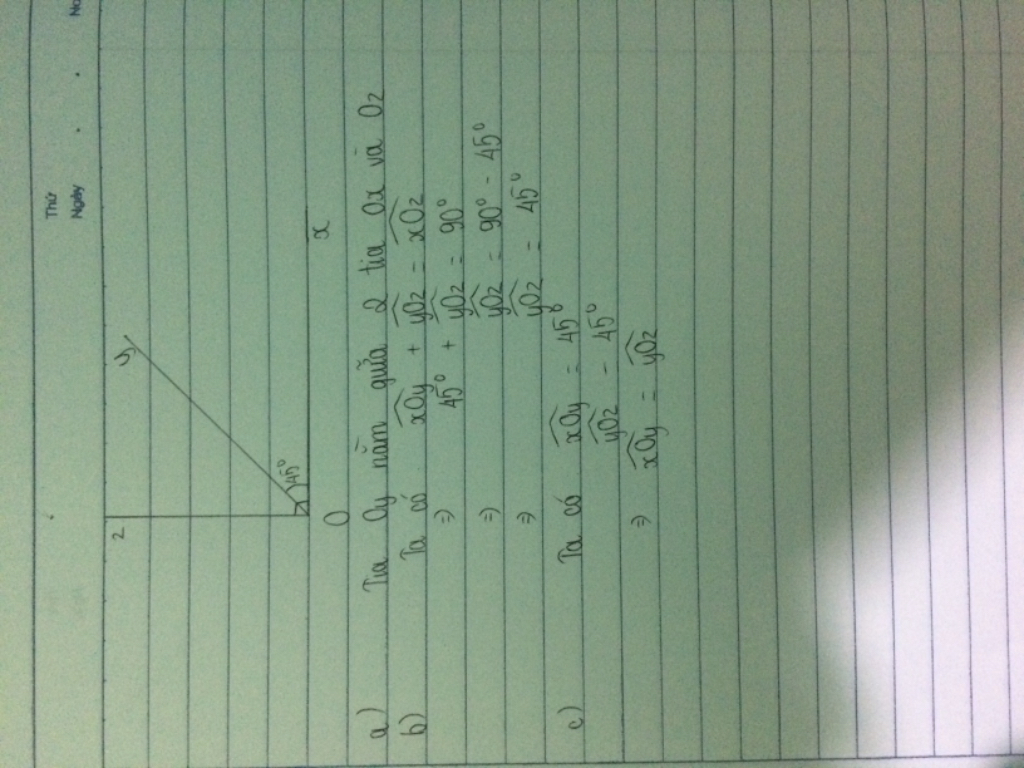 Thứ
Ngày
No
z
y
45°
O
x
a) Tia Oy nằm giữa 2 tia Ox và Oz
b) Ta có xOy + yOz = xOz
=) 45° + yOz = 90°
=) yOz = 90° - 45°
=) yOz = 45°
c) Ta có xOy = 45°
yOz = 45°
=) xOy = yOz